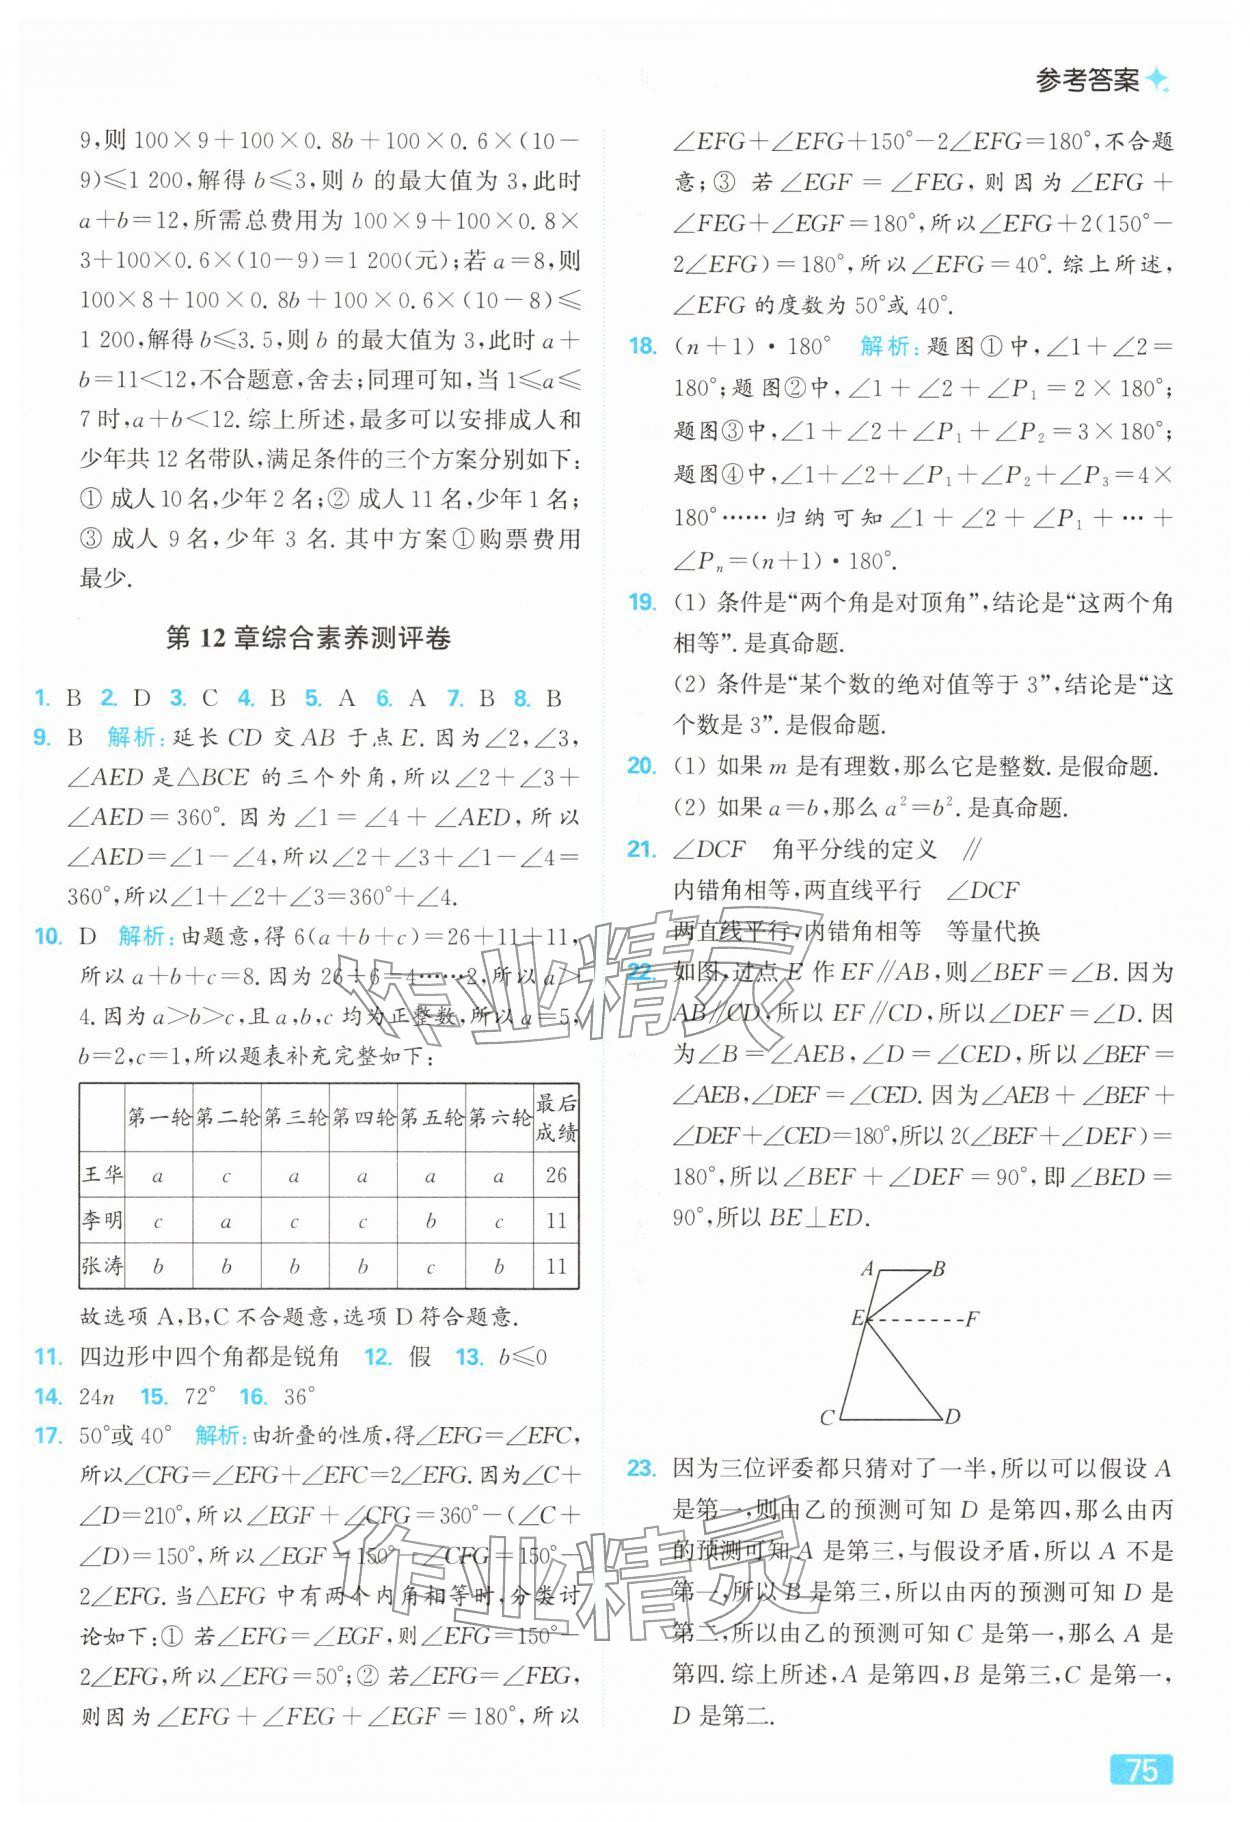 参考答案
9,则100×9+100×0.8b+100×0.6×(10-
9)≤1 200,解得b≤3,则b的最大值为3,此时
a+b=12,所需总费用为100×9+100×0.8×
3+100×0.6×(10-9)=1 200(元);若a=8,则
100×8+100×0.8b+100×0.6×(10-8)≤
1 200,解得b≤3.5,则b的最大值为3,此时a+
b=11<12,不合题意,舍去;同理可知,当1≤a≤
7时,a+b<12.综上所述,最多可以安排成人和
少年共12名带队,满足条件的三个方案分别如下:
① 成人10名,少年2名;② 成人11名,少年1名;
③ 成人9名,少年3名.其中方案①购票费用
最少.
第12章综合素养测评卷
1. B 2. D 3. C 4. B 5. A 6. A 7. B 8. B
9. B 解析:延长CD交AB于点E.因为∠2,∠3,
∠AED是△BCE的三个外角,所以∠2+∠3+
∠AED=360°.因为∠1=∠4+∠AED,所以
∠AED=∠1-∠4,所以∠2+∠3+∠1-∠4=
360°,所以∠1+∠2+∠3=360°+∠4.
10. D 解析:由题意,得6(a+b+c)=26+11+11,
所以a+b+c=8.因为26÷6=4……2,所以a>
4.因为a>b>c,且a,b,c均为正整数,所以a=5,
b=2,c=1,所以题表补充完整如下:
第一轮 第二轮 第三轮 第四轮 第五轮 第六轮 最后成绩
王华 a c a a a a 26
李明 c a c c b c 11
张涛 b b b b c b 11
故选项A,B,C不合题意,选项D符合题意.
11. 四边形中四个角都是锐角 12. 假 13. b≤0
14. 24n 15. 72° 16. 36°
17. 50°或40° 解析:由折叠的性质,得∠EFG=∠EFC,
所以∠CFG=∠EFG+∠EFC=2∠EFG.因为∠C+
∠D=210°,所以∠EGF+∠CFG=360°-(∠C+
∠D)=150°,所以∠EGF=150°-∠CFG=150°-
2∠EFG.当△EFG中有两个内角相等时,分类讨
论如下:① 若∠EFG=∠EGF,则∠EFG=150°-
2∠EFG,所以∠EFG=50°;② 若∠EFG=∠FEG,
则因为∠EFG+∠FEG+∠EGF=180°,所以
∠EFG+∠EFG+150°-2∠EFG=180°,不合题
意;③ 若∠EGF=∠FEG,则因为∠EFG+
∠FEG+∠EGF=180°,所以∠EFG+2(150°-
2∠EFG)=180°,所以∠EFG=40°.综上所述,
∠EFG的度数为50°或40°.
18. (n+1)·180° 解析:题图①中,∠1+∠2=
180°;题图②中,∠1+∠2+∠P₁=2×180°;
题图③中,∠1+∠2+∠P₁+∠P₂=3×180°;
题图④中,∠1+∠2+∠P₁+∠P₂+∠P₃=4×
180°……归纳可知∠1+∠2+∠P₁+…+
∠Pₙ=(n+1)·180°.
19. (1) 条件是“两个角是对顶角”,结论是“这两个角
相等”.是真命题.
(2) 条件是“某个数的绝对值等于3”,结论是“这
个数是3”.是假命题.
20. (1) 如果m是有理数,那么它是整数.是假命题.
(2) 如果a=b,那么a²=b².是真命题.
21. ∠DCF 角平分线的定义 ∥
内错角相等,两直线平行 ∠DCF
两直线平行,内错角相等 等量代换
22. 如图,过点E作EF∥AB,则∠BEF=∠B.因为
AB∥CD,所以EF∥CD,所以∠DEF=∠D.因
为∠B=∠AEB,∠D=∠CED,所以∠BEF=
∠AEB,∠DEF=∠CED.因为∠AEB+∠BEF+
∠DEF+∠CED=180°,所以2(∠BEF+∠DEF)=
180°,所以∠BEF+∠DEF=90°,即∠BED=
90°,所以BE⊥ED.
A B
E F
C D
23. 因为三位评委都只猜对了一半,所以可以假设A
是第一,则由乙的预测可知D是第四,那么由丙
的预测可知A是第三,与假设矛盾,所以A不是
第一,所以B是第三,所以由丙的预测可知D是
第二,所以由乙的预测可知C是第一,那么A是
第四.综上所述,A是第四,B是第三,C是第一,
D是第二.
75
作业精灵
作业精灵